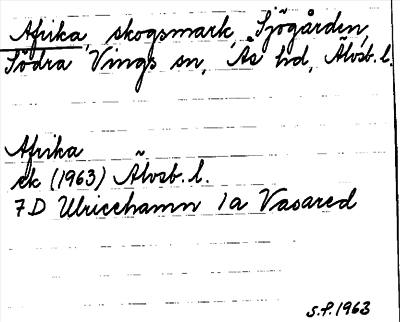 Afrika, skogsmark, Sjögården,
Södra Vings sn, Ås hd, Älvsb. l.
Afrika
ek (1963) Älvsb. l.
7D Ulricehamn 1a Vasared
S.P. 1963